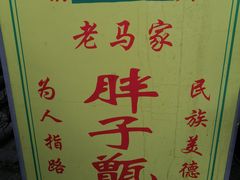 老马家
胖子甑
为人指路
民族美德